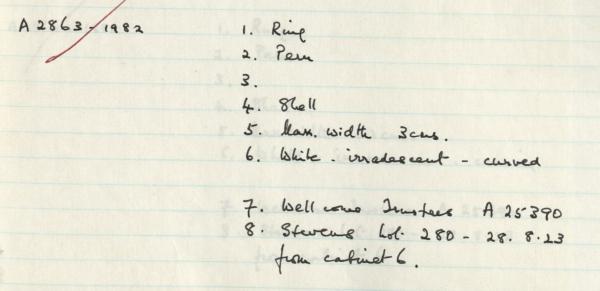 A 2863 - 1982
1. Ring
2. Peru
3.
4. Shell
5. Max. width 3cms.
6. White - irradescent - curved
7. Wellcome Trustees A 25390
8. Stevens Lot. 280 - 28. 8.23
from cabinet 6.